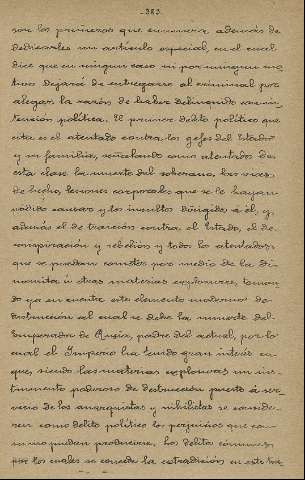 -383-
son los primeros que enumera, además de
dedicarles un artículo especial, en el cual
dice que en ningun caso ni por ningun mo-
tivo dejará de entregarse al criminal por
alegar la razón de haber delinquido con in-
tención política. El primer delito político que
cita es el atentado contra los gefes del Estado
y su familia, señalando como atentados de
esta clase la muerte del soberano, las vias
de hecho, lesiones corporales que se le hayan
podido causar y los insultos dirigidos a él, y
además el de traición contra el Estado, el de
conspiración y rebelión y todos los atentados
que se puedan cometer por medio de la di-
namita ú otras materias explosivas, toman-
do ya en cuenta este elemento moderno de
destrucción al cual se debe la muerte del
Emperador de Rusia, padre del actual, por lo
cual el Imperio ha tenido gran interés en
que, siendo las materias explosivas un ins-
trumento poderoso de destrucción puesto á ser-
vicio de los anarquistas y nihilistas se conside-
ren como delito político los perjuicios que con
mismo puedan producirse. Los delitos comunes
por los cuales se concede la extradición en este tra-